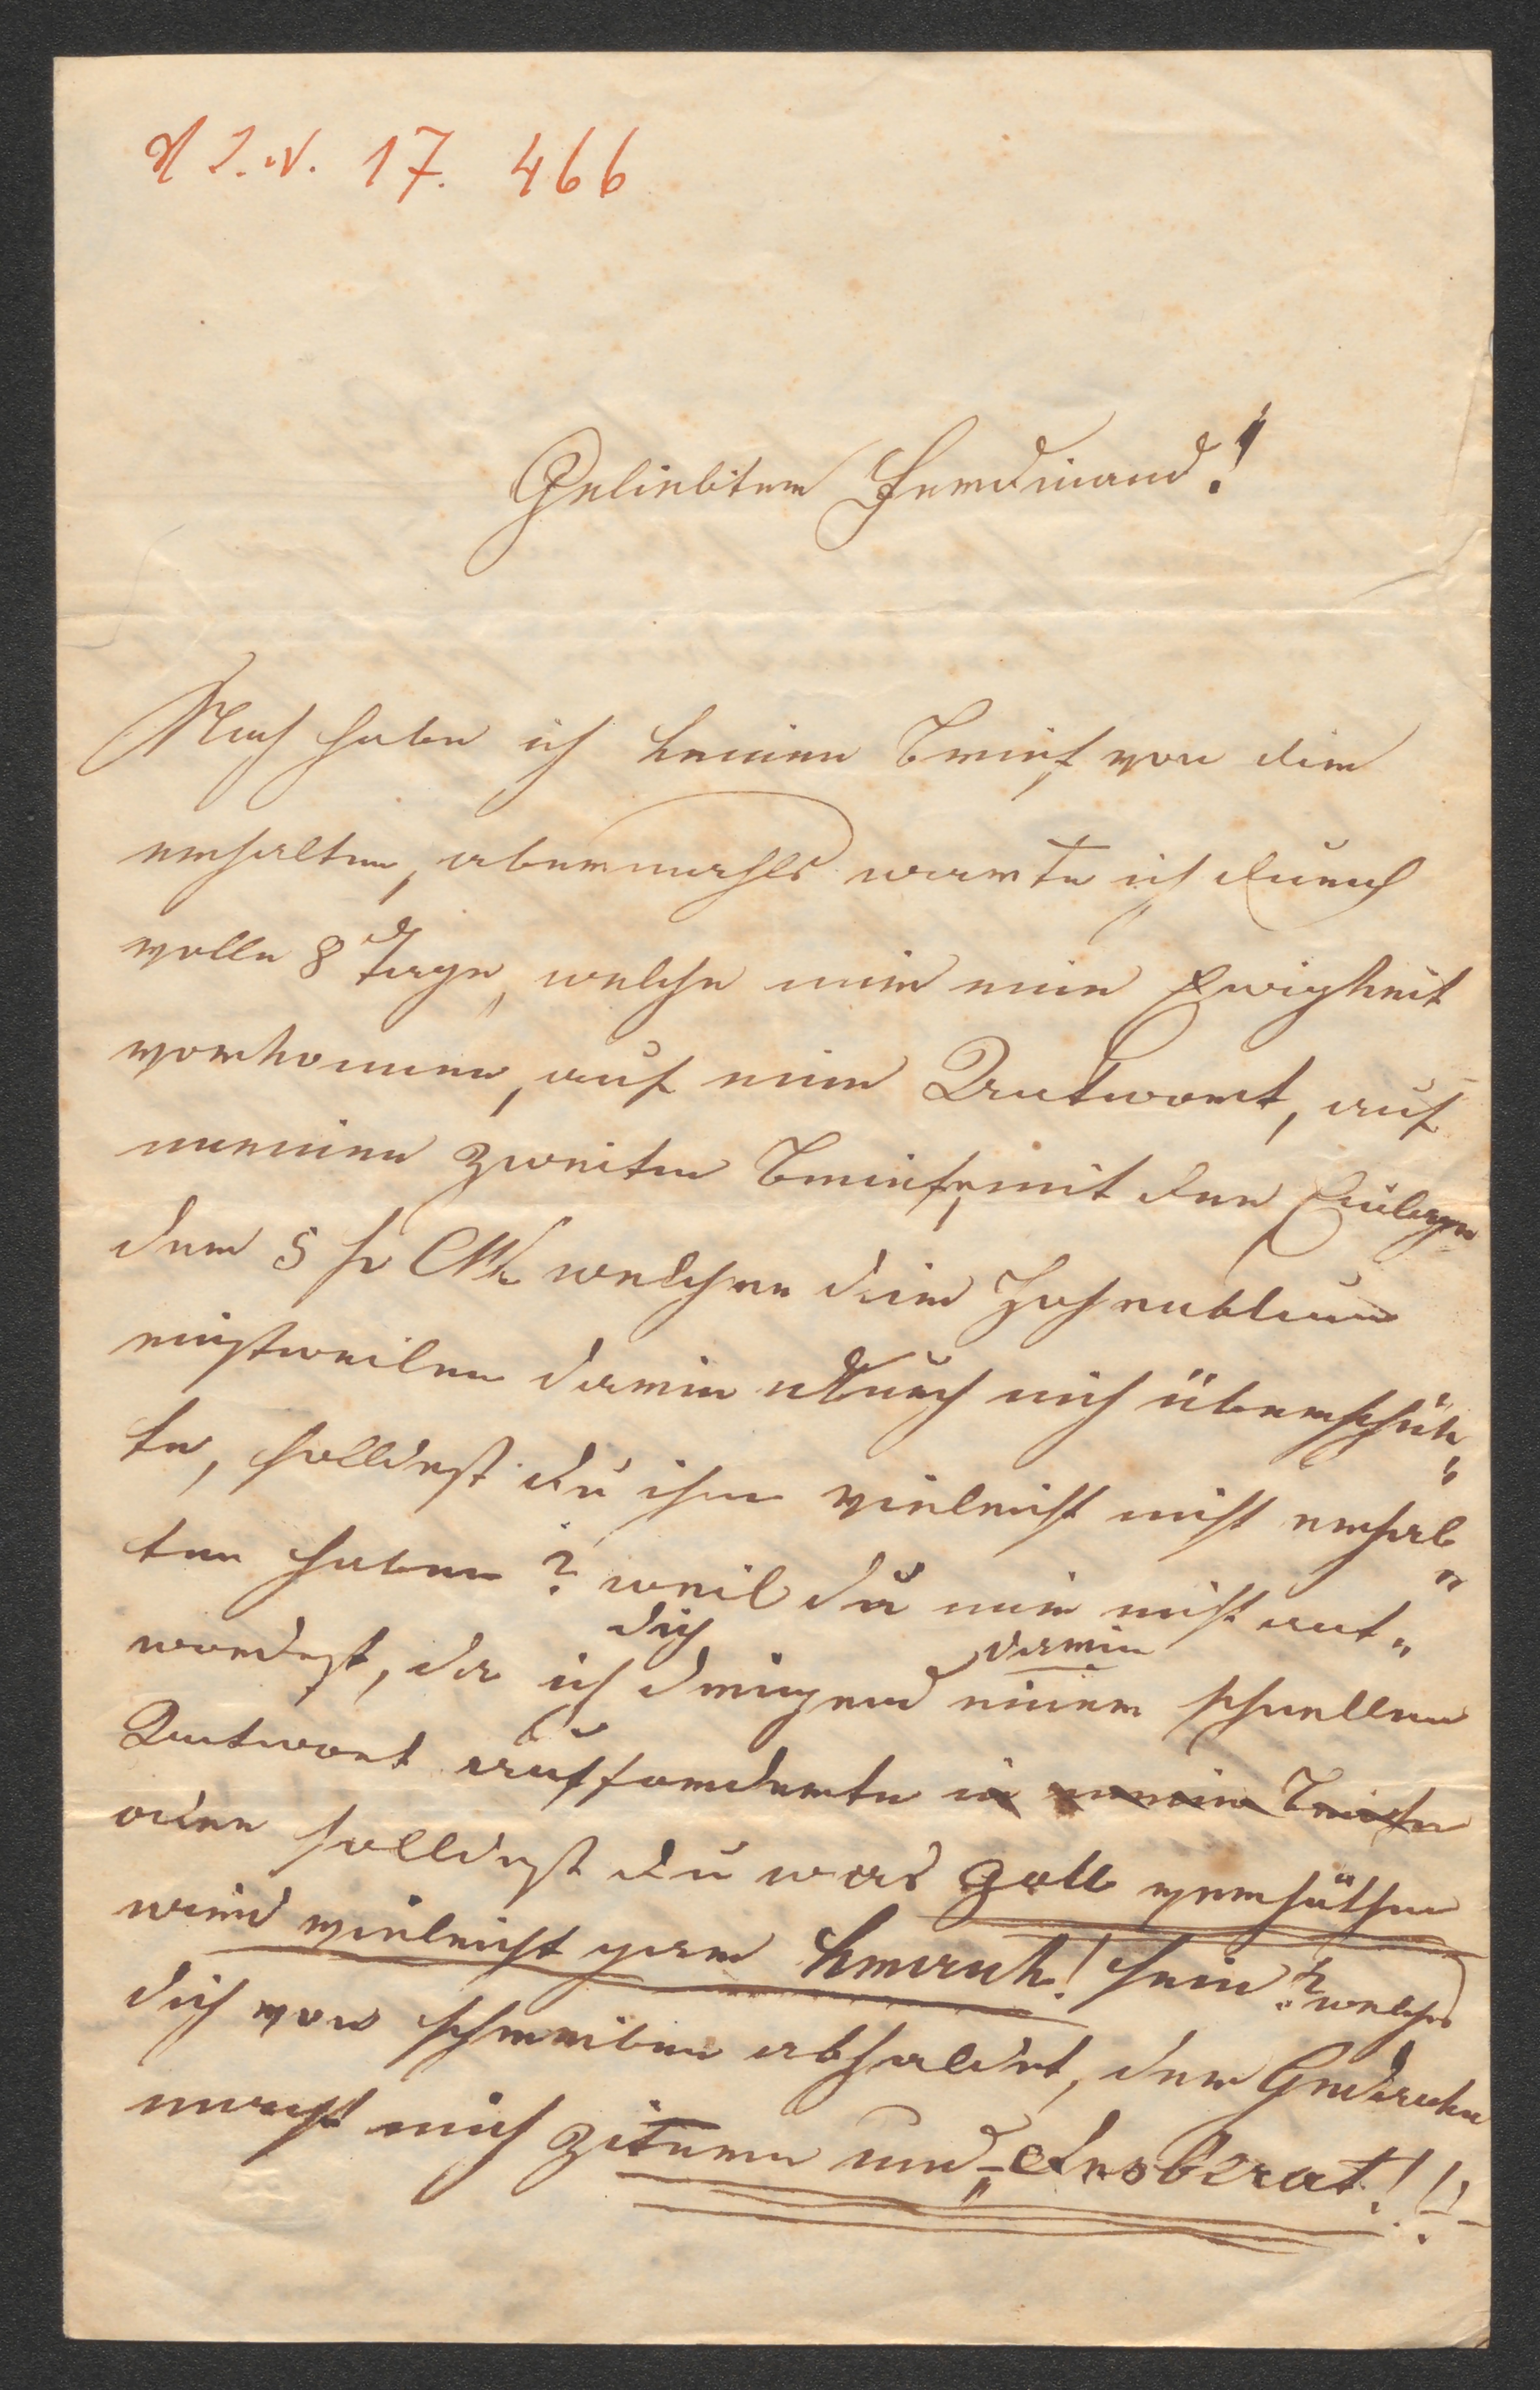 H.I.N. 17. 466
Geliebter Ferdinand!
Noch habe ich keinen Brief von dir
erhalten, abermahls warte ich durch
volle 8 Tage, welche mir eine Ewigkeit
vorkommen, auf eine Antwort, auf
meinen zweiten Briefe, mit den Einlagen
der 5 fr CMz welchen dein
einstweilen darin durch mich überschük„
te, solldest du ihn vieleicht nicht erhal„
ten haben? weil du mir nicht ant„
wordest, da ich dich dringend darin einer schnellen
Antwort aufforderte in meine Briefe
oder solldest du was Gott verhüthe
wird vieleicht gar krank! sein? welches
dich von schreiben abhaldet, der Gedanke
macht mich zitern und desberat!!!